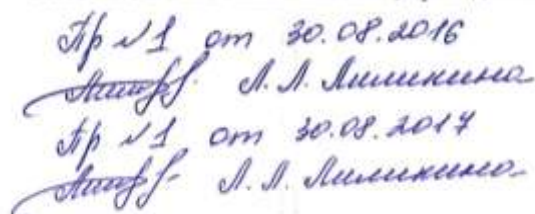 Пр №1 от 30.08.2016
Л.Л. Лиликина
Пр №1 от 30.08.2017
Л.Л. Лиликина